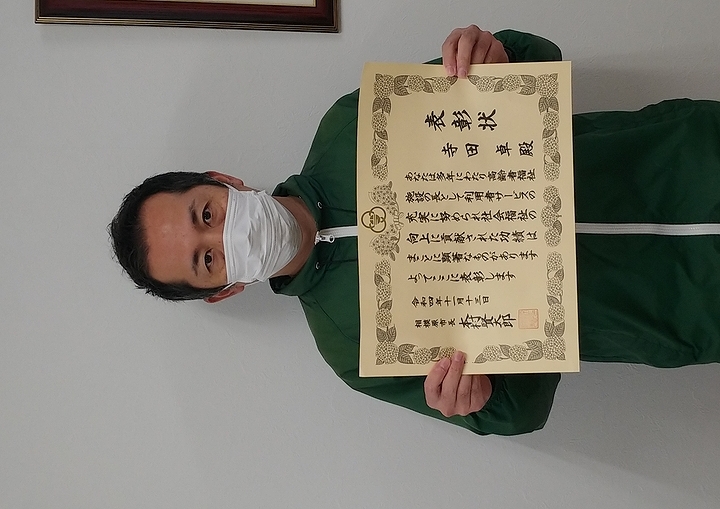 表彰状
寺田 卓 殿
あなたは多年にわたり高齢者福祉
施設の長として利用者サービスの
充実に努められ社会福祉の
向上に貢献された功績は
まことに顕著なものがあります
よってここに表彰します
令和四年十一月十三日
相模原市長 本村賢太郎